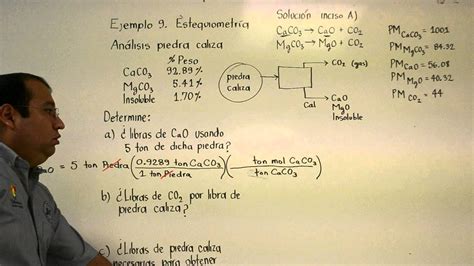 Ejemplo 9. Estequiometría
Análisis piedra caliza
% Peso
CaCO₃ 92.89 %
MgCO₃ 5.41 %
Insoluble 1.70 %
Solución inciso A)
CaCO₃ → CaO + CO₂
MgCO₃ → MgO + CO₂
piedra caliza
CO₂ (gas)
Cal
CaO
MgO
Insoluble
PM CaCO₃ = 100.1
PM MgCO₃ = 84.32
PM CaO = 56.08
PM MgO = 40.32
PM CO₂ = 44
Determine:
a) ¿libras de CaO usando
5 ton de dicha piedra?
aO = 5 ton Piedra (0.9289 ton CaCO₃ / 1 ton Piedra) ( ton mol CaCO₃ / ton CaCO₃ )
b) ¿Libras de CO₂ por libra de
piedra caliza?
c) ¿Libras de piedra caliza
necesarias para obtener